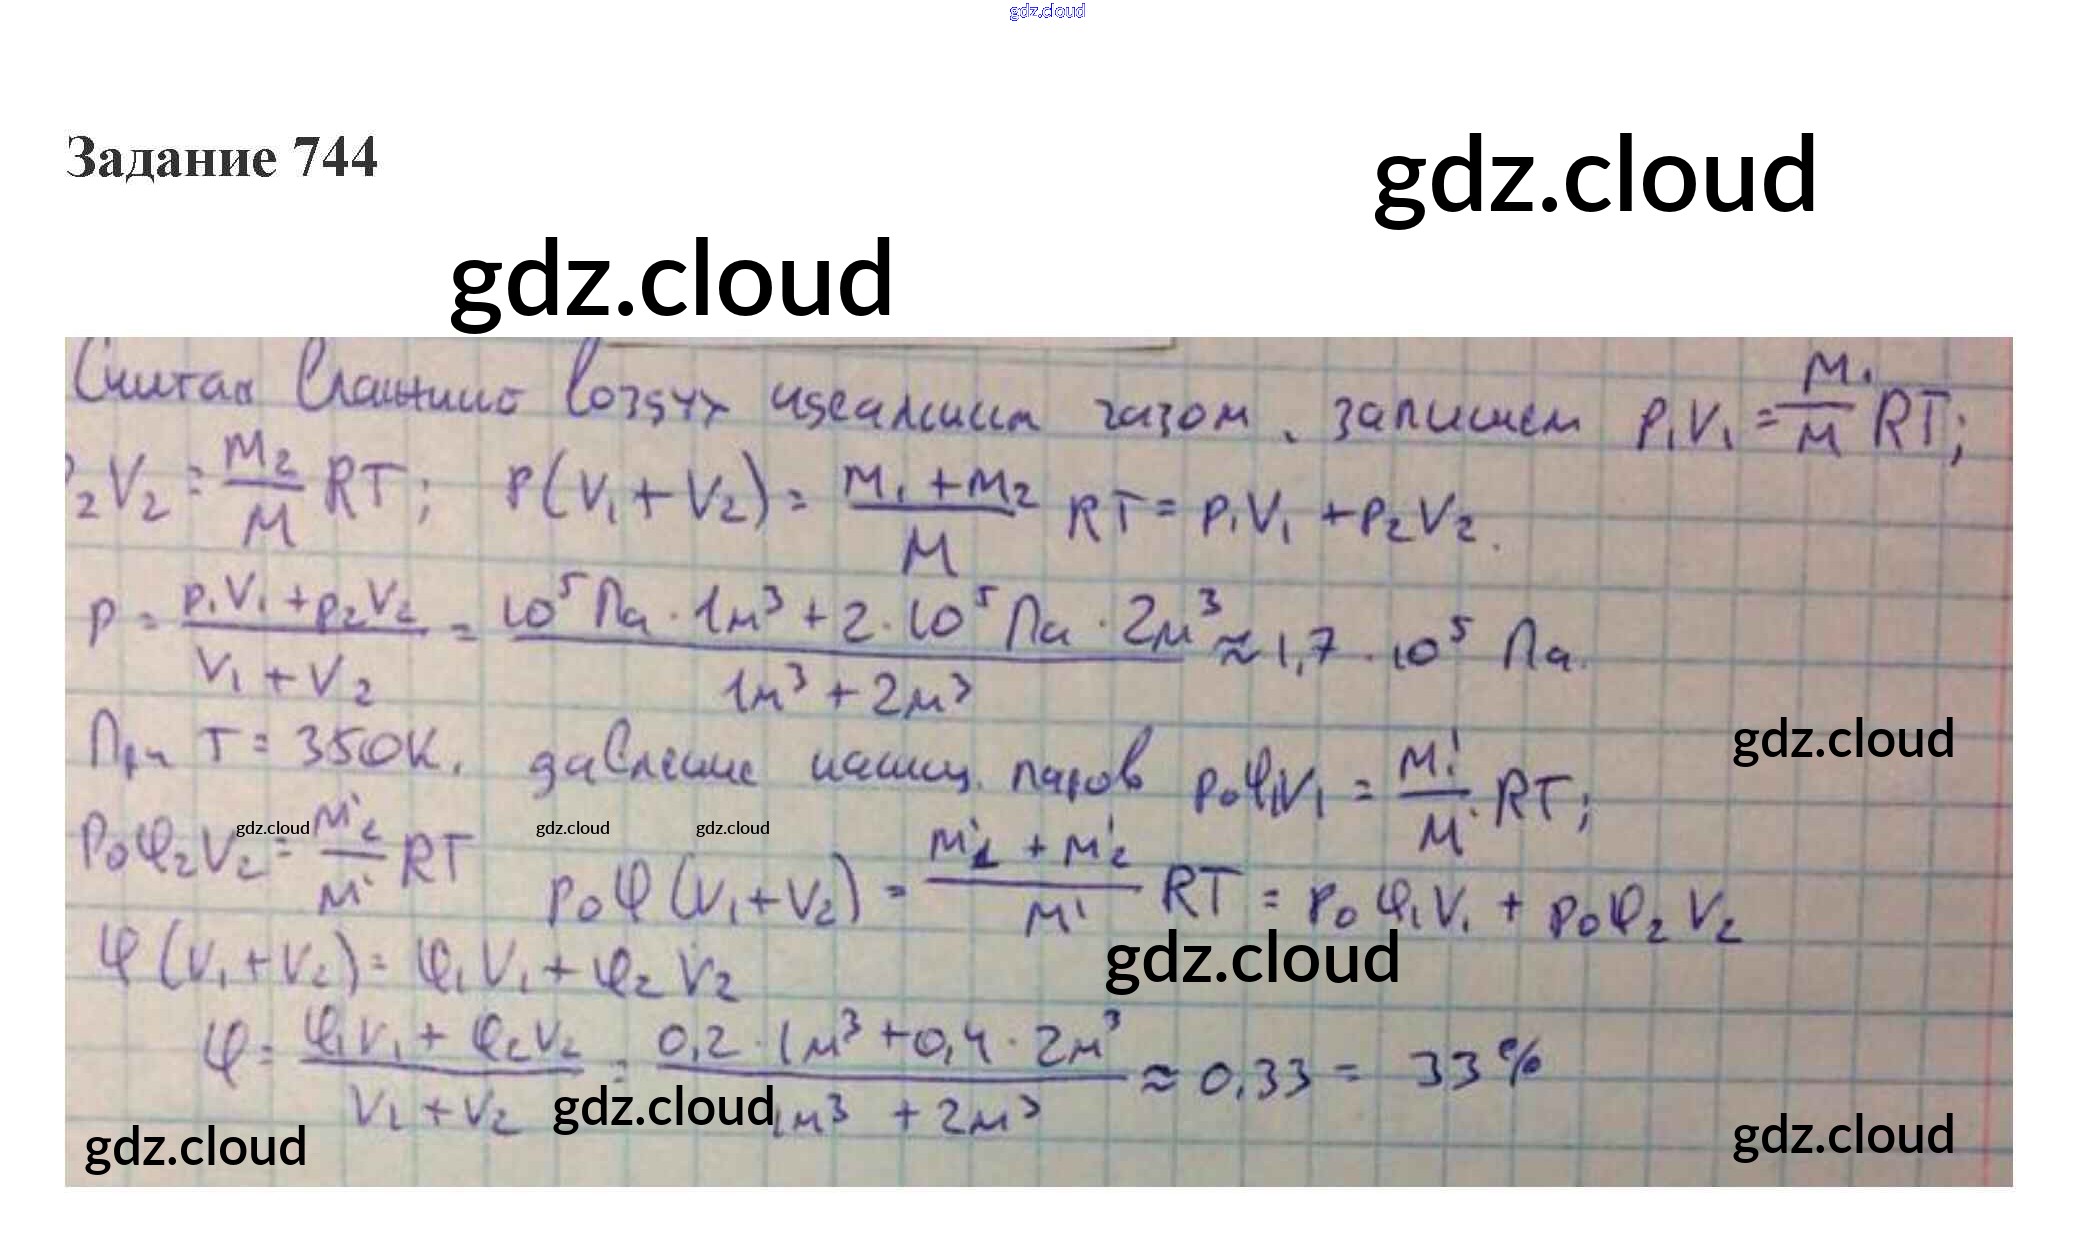 gdz.cloud
Задание 744
gdz.cloud
gdz.cloud
Считая влажный воздух идеальным газом, запишем p₁V₁ = m₁/M RT;
p₂V₂ = m₂/M RT; p(V₁+V₂) = (m₁+m₂)/M RT = p₁V₁ + p₂V₂.
p = (p₁V₁+p₂V₂)/(V₁+V₂) = (10⁵ Па · 1м³ + 2·10⁵ Па · 2м³)/(1м³ + 2м³) ≈ 1,7 · 10⁵ Па.
gdz.cloud
При T = 350К, давление насыщ. паров p₀φ₁V₁ = m₁'/M' RT;
p₀φ₂V₂ = m₂'/M' RT p₀φ(V₁+V₂) = (m₁' + m₂')/M' RT = p₀φ₁V₁ + p₀φ₂V₂
gdz.cloud gdz.cloud gdz.cloud
φ(V₁+V₂) = φ₁V₁ + φ₂V₂
gdz.cloud
φ = (φ₁V₁ + φ₂V₂)/(V₁+V₂) = (0,2 · 1м³ + 0,4 · 2м³)/(1м³ + 2м³) ≈ 0,33 = 33%
gdz.cloud
gdz.cloud
gdz.cloud